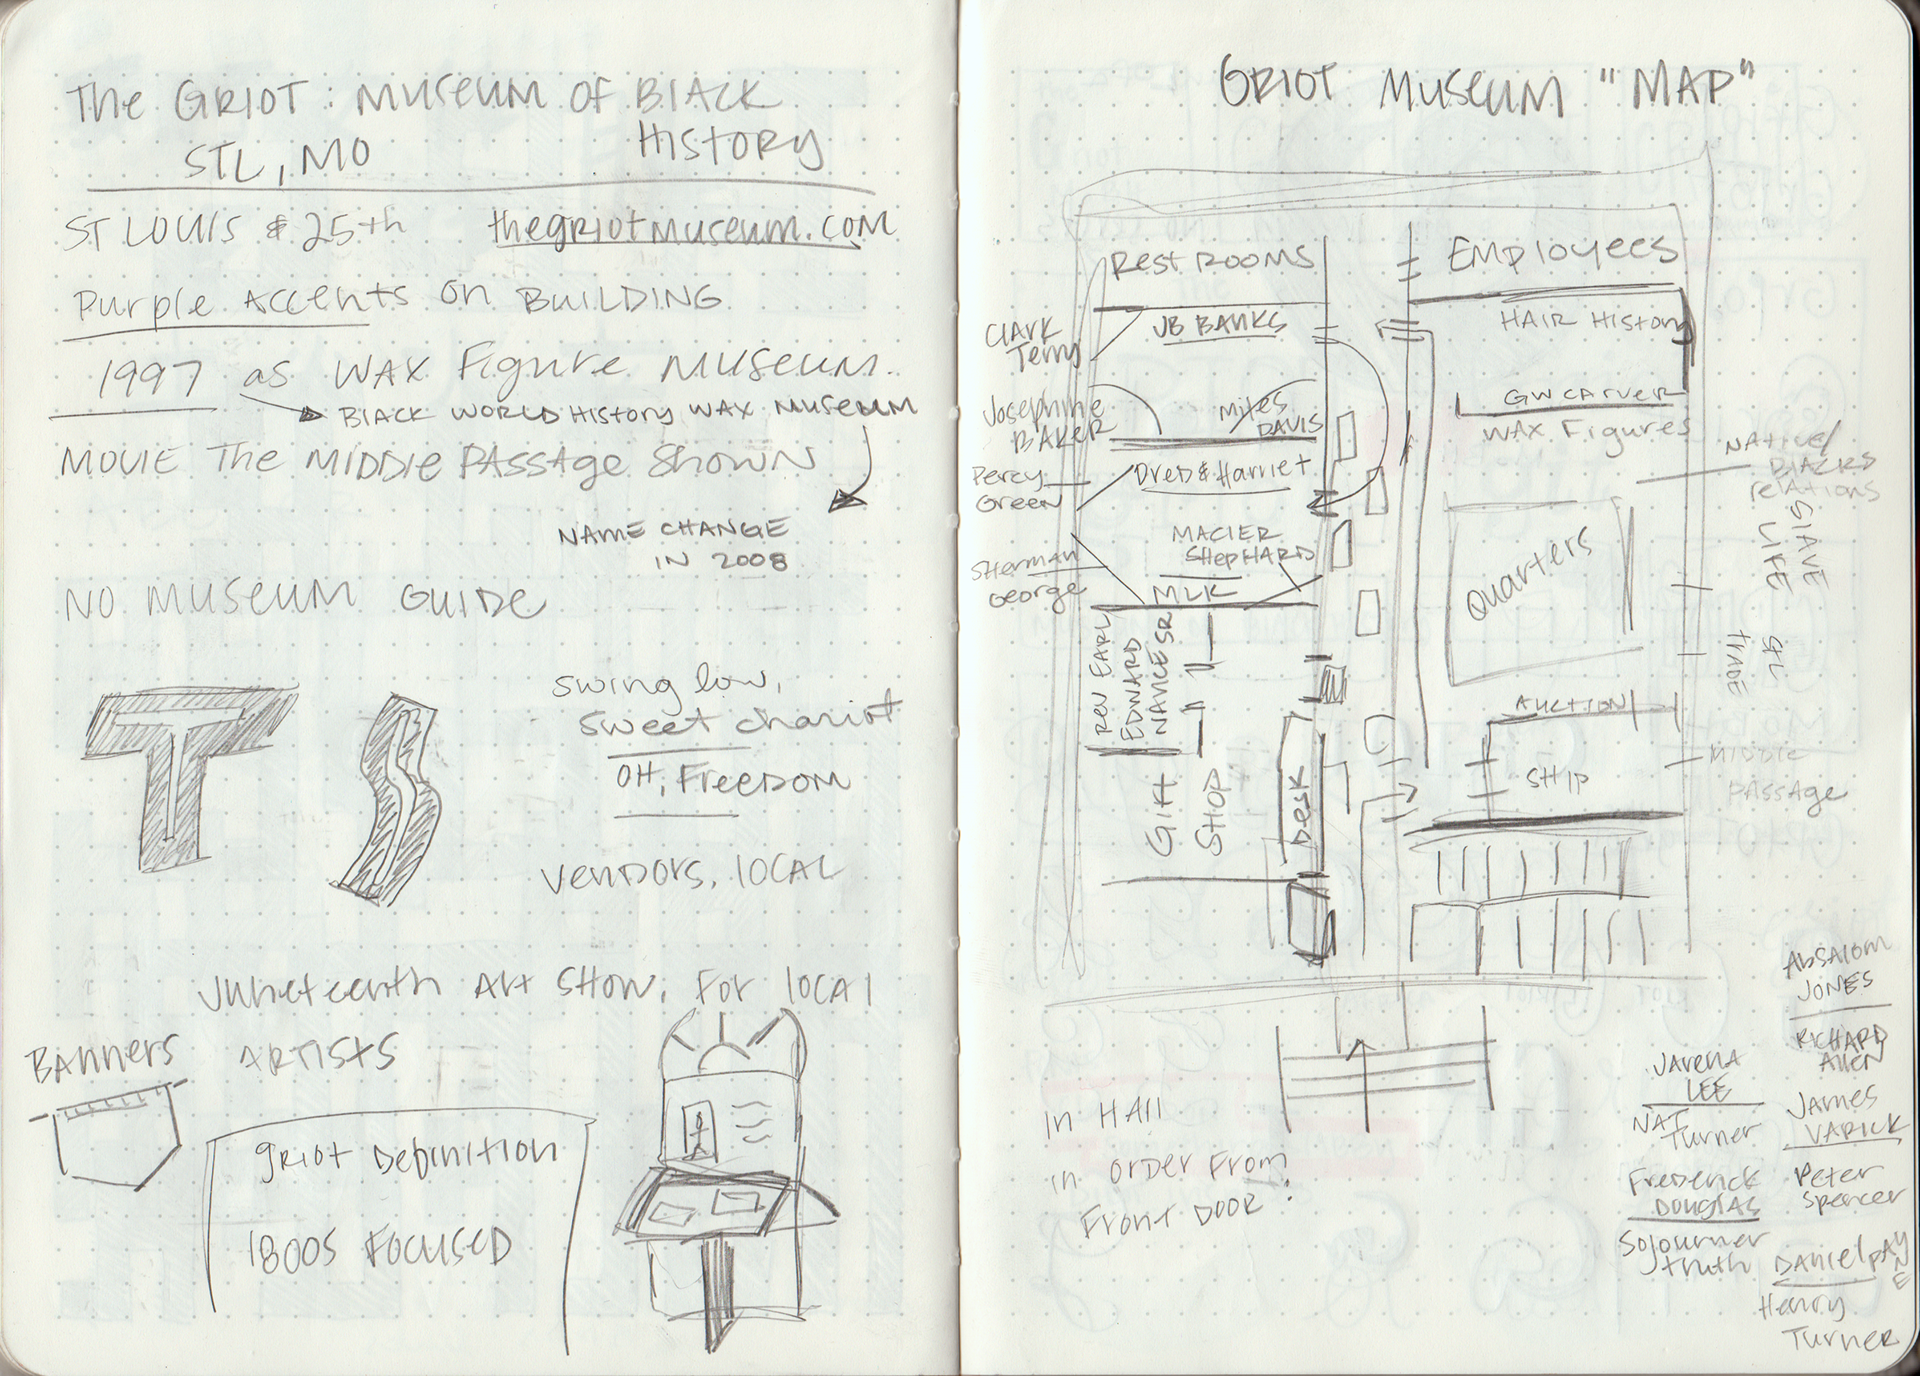 The GRIOT: Museum OF BLACK
HISTORY
STL, MO
ST LOUIS & 25th
thegriotmuseum.com
Purple Accents on BUILDING
1997 as WAX Figure Museum.
BLACK WORLD HISTORY WAX MUSEUM
MOVIE The MIDDLE PASSAGE SHOWN
NAME CHANGE
IN 2008
NO MUSEUM GUIDE
T S
swing low,
sweet chariot
OH, FREEDOM
VENDORS, LOCAL
Juneteenth Art SHOW, FOR local
ARTISTS
BANNERS
griot Definition
1800S FOCUSED
GRIOT Museum "MAP"
Rest ROOMS
Employees
CLARK
Terry
JB BANKS
HAIR HISTORY
Josephine
BAKER
Miles
DAVIS
GW CARVER
WAX Figures
Percy
Green
Dred & Harriet
Native/
BLACKS
relations
Sherman
George
MACLER
SHEPHARD
MLK
Quarters
SLAVE
LIFE
REV EARL
EDWARD
NANCE SR
STL
TRADE
AUCTION
Gift
SHOP
Desk
SHIP
MIDDLE
PASSAGE
In HALL
in order From
Front DOOR:
Absalom
JONES
RICHARD
Allen
JARENA
LEE
James
VARICK
NAT
Turner
Peter
Spencer
Frederick
DOUGLAS
Sojourner
truth
Daniel PAYNE
Henry
Turner